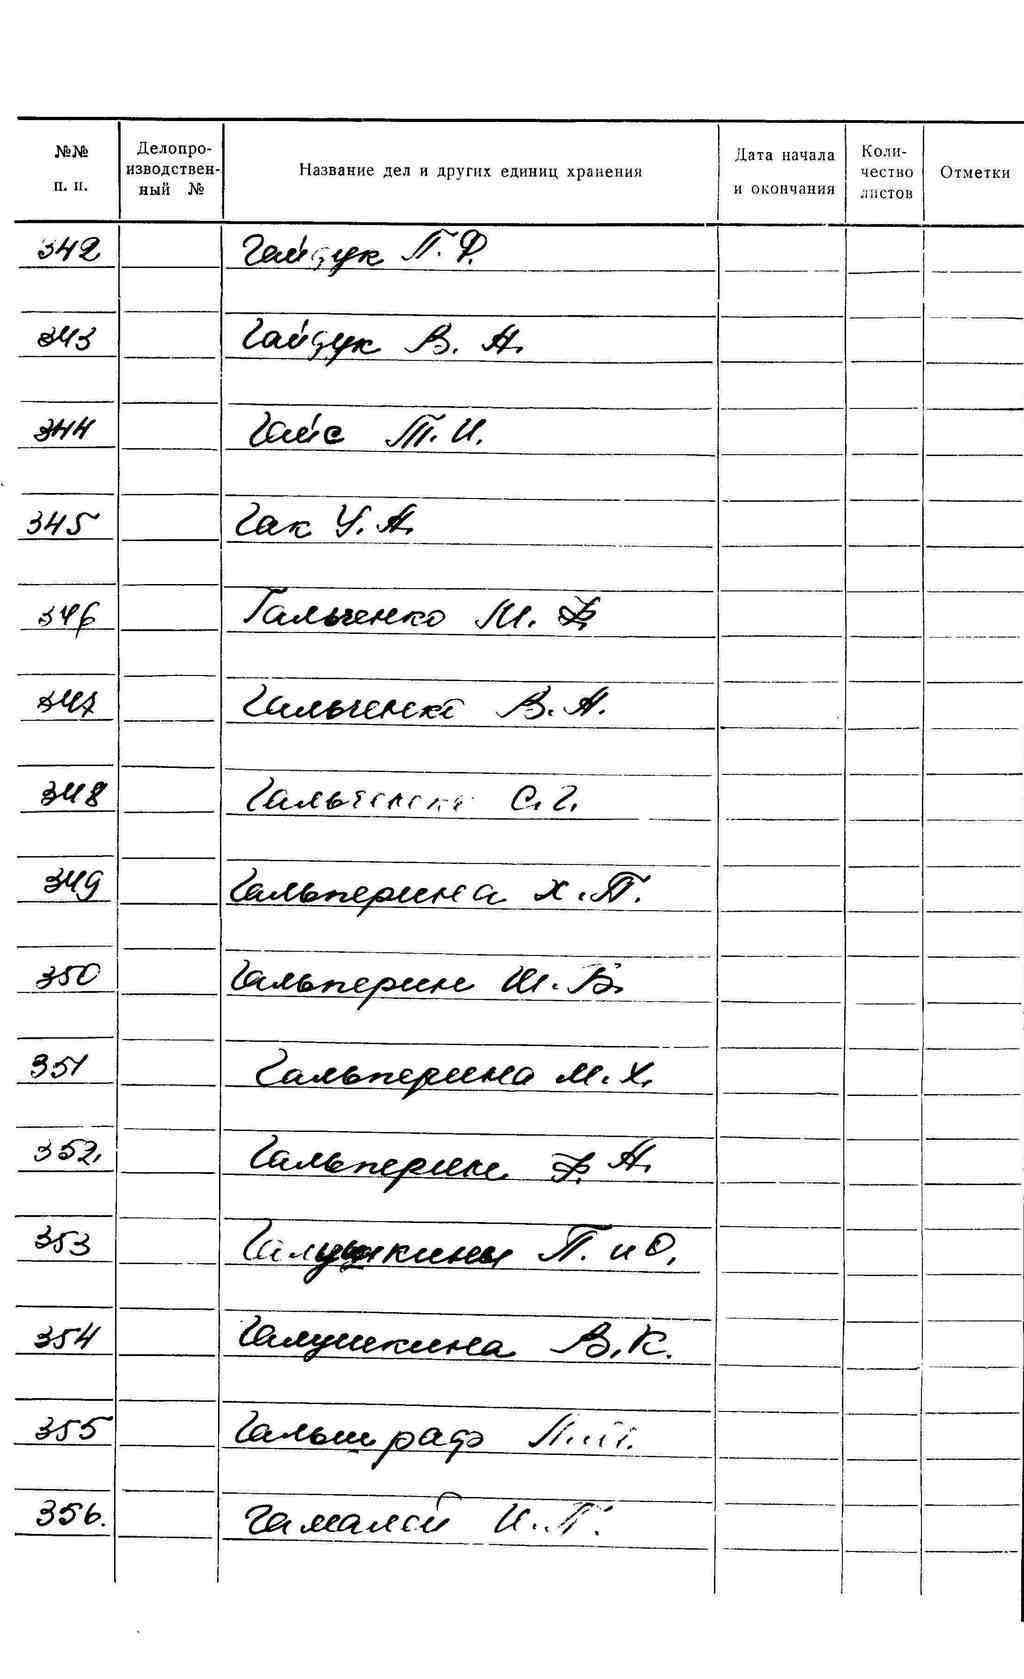 №№ п. п.
Делопроизводственный №
Название дел и других единиц хранения
Дата начала и окончания
Количество листов
Отметки
342 Гайдук П. Ф.
343 Гайдук В. А.
344 Гайс Т. И.
345 Гак У. А.
346 Гальченко М. Ф.
347 Гальченко В. А.
348 Гальченко С. Г.
349 Гальперина Х. П.
350 Гальперин Ш. В.
351 Гальперина М. Х.
352. Гальперин Ф. А.
353 Галушкины П. и О.
354 Галушкина В. К.
355 Гальшграф
356. Гамалей И. П.